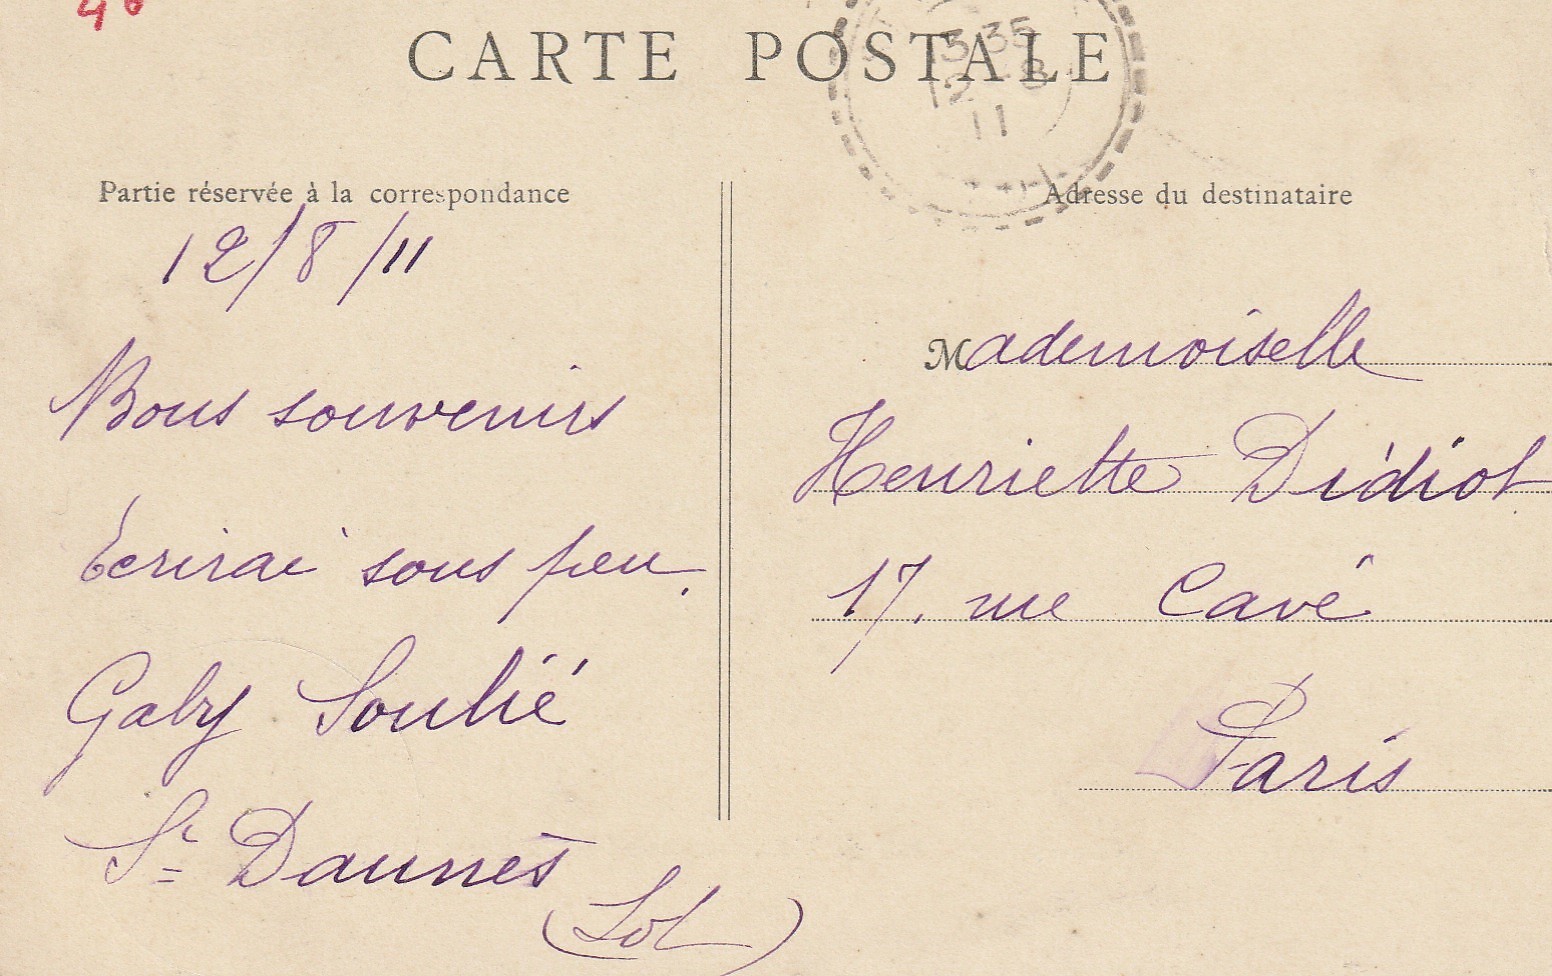 40
CARTE POSTALE
3 35
12 - 8
11
Partie réservée à la correspondance
12/8/11
Bons souvenirs
Écrirai sous peu.
Gaby Soulié
St Daunès
(Lot)
Adresse du destinataire
Mademoiselle
Henriette Didiot
17. rue Cavé
Paris